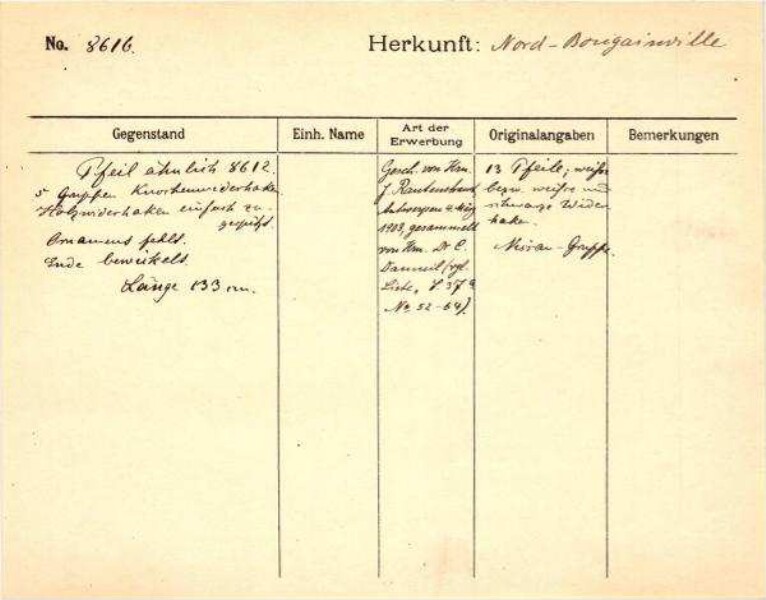 No. 8616.
Herkunft: Nord-Bougainville
Gegenstand
Einh. Name
Art der
Erwerbung
Originalangaben
Bemerkungen
Pfeil ähnlich 8612.
5 Gruppen Knochenwiderhaken
Holzwiderhaken einfach zu-
gespitzt.
Ornament fehlt.
Ende bewickelt.
Länge 133 cm.
Gesch. von Hrn.
J. Rautenstrauch
Antwerpen
1903, gesammelt
von Hrn. Dr C.
Liste, S. 37a
No 52-64).
13 Pfeile, weisse
bezw. weisse und
schwarze Wider
haken.
Nissan-Gruppe.